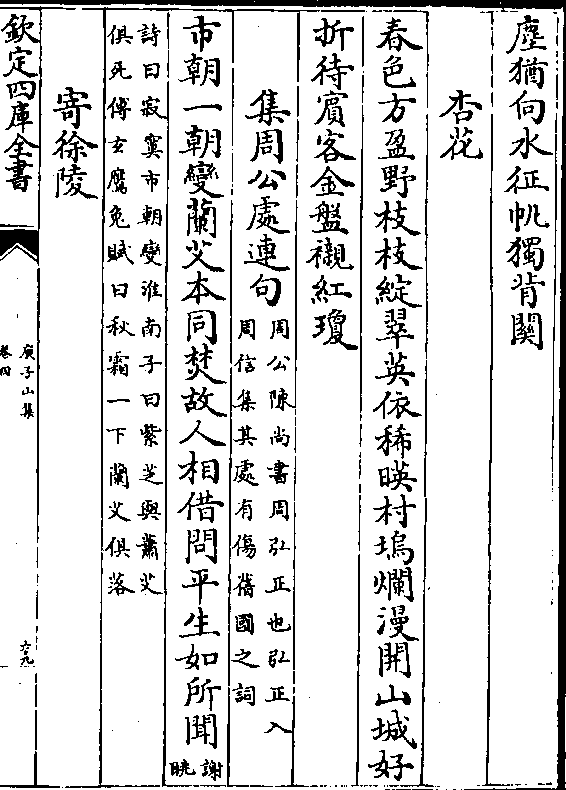 塵猶向水征帆獨背關
杏花
春色方盈野枝枝綻翠英依稀暎村塢爛漫開山城好
折待賓客金盤襯紅瓊
集周公處連句
周公陳尚書周弘正也弘正入
周信集其處有傷舊國之詞
市朝一朝變蘭艾本同焚故人相借問平生如所聞
謝
朓
詩曰寂寞市朝變淮南子曰紫芝與蕭艾
俱死傅玄鷹兔賦曰秋霜一下蘭艾俱落
寄徐陵
欽定四庫全書
庾子山集
卷四
六九